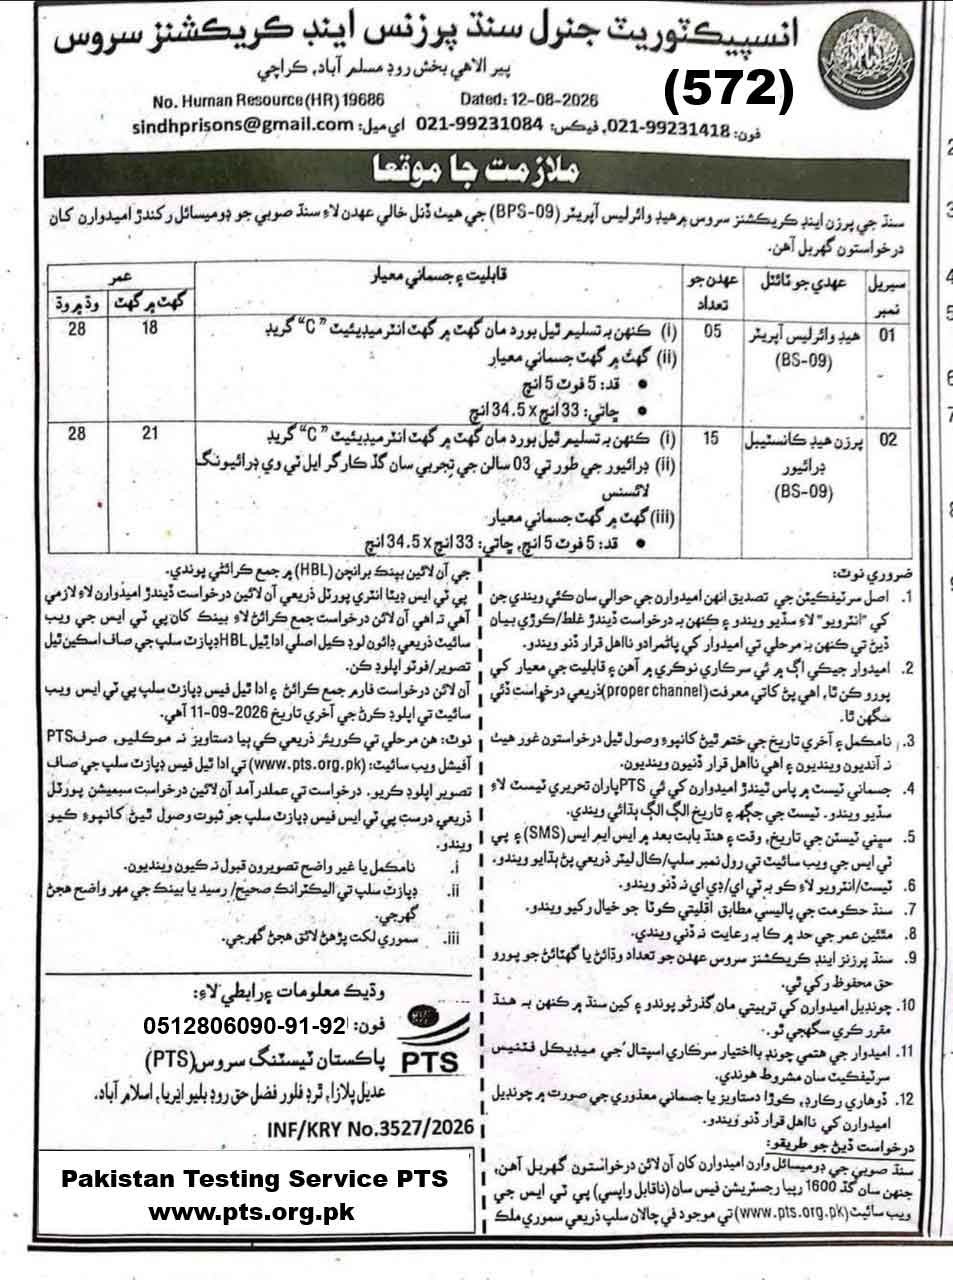 انسپيڪٽوريٽ جنرل سنڌ پرزنس اينڊ ڪريڪشنز سروس
پير الاهي بخش روڊ مسلم آباد، ڪراچي
(572)
No. Human Resource (HR) 19686 Dated: 12-08-2026
فون: 021-99231418، فيڪس: 021-99231084 اي ميل: sindhprisons@gmail.com
ملازمت جا موقعا
سنڌ جي پرزن اينڊ ڪريڪشنز سروس ۾ هيڊ وائرليس آپريٽر (BPS-09) جي هيٺ ڏنل خالي عهدن لاءِ سنڌ صوبي جو ڊوميسائل رکندڙ اميدوارن کان
درخواستون گهربل آهن.
سيريل نمبر
عهدي جو ٽائٽل
عهدن جو تعداد
قابليت ۽ جسماني معيار
عمر
گهٽ ۾ گهٽ
وڌ ۾ وڌ
01
هيڊ وائرليس آپريٽر
(BS-09)
05
(i) ڪنهن به تسليم ٿيل بورڊ مان گهٽ ۾ گهٽ انٽرميڊيئيٽ "C" گريڊ
(ii) گهٽ ۾ گهٽ جسماني معيار
• قد: 5 فوٽ 5 انچ
• ڇاتي: 33 انچ x 34.5 انچ
18
28
02
پرزن هيڊ ڪانسٽيبل
ڊرائيور
(BS-09)
15
(i) ڪنهن به تسليم ٿيل بورڊ مان گهٽ ۾ گهٽ انٽرميڊيئيٽ "C" گريڊ
(ii) ڊرائيور جي طور تي 03 سالن جي تجربي سان گڏ ڪارگر ايل ٽي وي ڊرائيونگ
لائسنس
(iii) گهٽ ۾ گهٽ جسماني معيار
• قد: 5 فوٽ 5 انچ، ڇاتي: 33 انچ x 34.5 انچ
21
28
ضروري نوٽ:
1. اصل سرٽيفڪيٽن جي تصديق انهن اميدوارن جي حوالي سان ڪئي ويندي جن
کي "انٽرويو" لاءِ سڏيو ويندو ۽ ڪنهن به درخواست ڏيندڙ غلط/ڪوڙي بيان
ڏيڻ تي ڪنهن به مرحلي تي اميدوار کي پاڻمرادو نااهل قرار ڏنو ويندو.
2. اميدوار جيڪي اڳ ۾ ئي سرڪاري نوڪري ۾ آهن ۽ قابليت جي معيار کي
پورو ڪن ٿا، اهي پڻ کاتي معرفت (proper channel) ذريعي درخواست ڏئي
سگهن ٿا.
3. نامڪمل ۽ آخري تاريخ جي ختم ٿيڻ کانپوءِ وصول ٿيل درخواستون غور هيٺ
نه آنديون وينديون ۽ اهي نااهل قرار ڏنيون وينديون.
4. جسماني ٽيسٽ ۾ پاس ٿيندڙ اميدوارن کي ئي PTS پاران تحريري ٽيسٽ لاءِ
سڏيو ويندو. ٽيسٽ جي جڳهه ۽ تاريخ الڳ الڳ ٻڌائي ويندي.
5. سڀني ٽيسٽن جي تاريخ، وقت ۽ هنڌ بابت بعد ۾ ايس ايم ايس (SMS) ۽ پي
ٽي ايس جي ويب سائيٽ تي رول نمبر سلپ/ڪال ليٽر ذريعي پڻ ٻڌايو ويندو.
6. ٽيسٽ/انٽرويو لاءِ ڪو به ٽي اي/ڊي اي نه ڏنو ويندو.
7. سنڌ حڪومت جي پاليسي مطابق اقليتي ڪوٽا جو خيال رکيو ويندو.
8. مٿئين عمر جي حد ۾ ڪا به رعايت نه ڏني ويندي.
9. سنڌ پرزنز اينڊ ڪريڪشنز سروس عهدن جو تعداد وڌائڻ يا گهٽائڻ جو پورو
حق محفوظ رکي ٿي.
10. چونڊيل اميدوارن کي تربيتي مان گذرڻو پوندو ۽ کين سنڌ ۾ ڪنهن به هنڌ
مقرر ڪري سگهجي ٿو.
11. اميدوار جي حتمي چونڊ بااختيار سرڪاري اسپتال جي ميڊيڪل فٽنيس
سرٽيفڪيٽ سان مشروط هوندي.
12. ڏوهاري رڪارڊ، ڪوڙا دستاويز يا جسماني معذوري جي صورت ۾ چونڊيل
اميدوارن کي نااهل قرار ڏنو ويندو.
درخواست ڏيڻ جو طريقو:
سنڌ صوبي جي ڊوميسائل وارن اميدوارن کان آن لائن درخواستون گهربل آهن،
جنهن سان گڏ 1600 رپيا رجسٽريشن فيس سان (ناقابل واپسي) پي ٽي ايس جي
ويب سائيٽ (www.pts.org.pk) تي موجود في چالان سلپ ذريعي سموري ملڪ
جي آن لائين بينڪ برانچن (HBL) ۾ جمع ڪرائڻي پوندي.
پي ٽي ايس ڊيٽا انٽري پورٽل ذريعي آن لائين درخواست ڏيندڙ اميدوارن لاءِ لازمي
آهي ته اهي آن لائن درخواست جمع ڪرائڻ لاءِ بينڪ کان پي ٽي ايس جي ويب
سائيٽ ذريعي ڊائون لوڊ ڪيل اصلي ادا ٿيل HBL ڊپازٽ سلپ جي صاف اسڪين ٿيل
تصوير/فوٽو اپلوڊ ڪن.
آن لائن درخواست فارم جمع ڪرائڻ ۽ ادا ٿيل فيس ڊپازٽ سلپ پي ٽي ايس ويب
سائيٽ تي اپلوڊ ڪرڻ جي آخري تاريخ 11-09-2026 آهي.
نوٽ: هن مرحلي تي ڪوريئر ذريعي ڪي به دستاويز نه موڪليو، صرف PTS
آفيشل ويب سائيٽ: (www.pts.org.pk) تي ادا ٿيل فيس ڊپازٽ سلپ جي صاف
تصوير اپلوڊ ڪريو. درخواست تي عملدرآمد آن لائين درخواست سبميشن پورٽل
ذريعي درست پي ٽي ايس فيس ڊپازٽ سلپ جو ثبوت وصول ٿيڻ کانپوءِ ڪيو
ويندو.
i. نامڪمل يا غير واضح تصويرون قبول نه ڪيون وينديون.
ii. ڊپازٽ سلپ تي اليڪٽرانڪ صحيح/رسيد يا بينڪ جي مهر واضح هجڻ
گهرجي.
iii. سموري لکت پڙهڻ لائق هجڻ گهرجي.
وڌيڪ معلومات ۽ رابطي لاءِ:
فون: 0512806090-91-92
پاڪستان ٽيسٽنگ سروس (PTS)
PTS
عديل پلازا، ٿرڊ فلور فضل حق روڊ بليو ايريا، اسلام آباد.
INF/KRY No.3527/2026
Pakistan Testing Service PTS
www.pts.org.pk